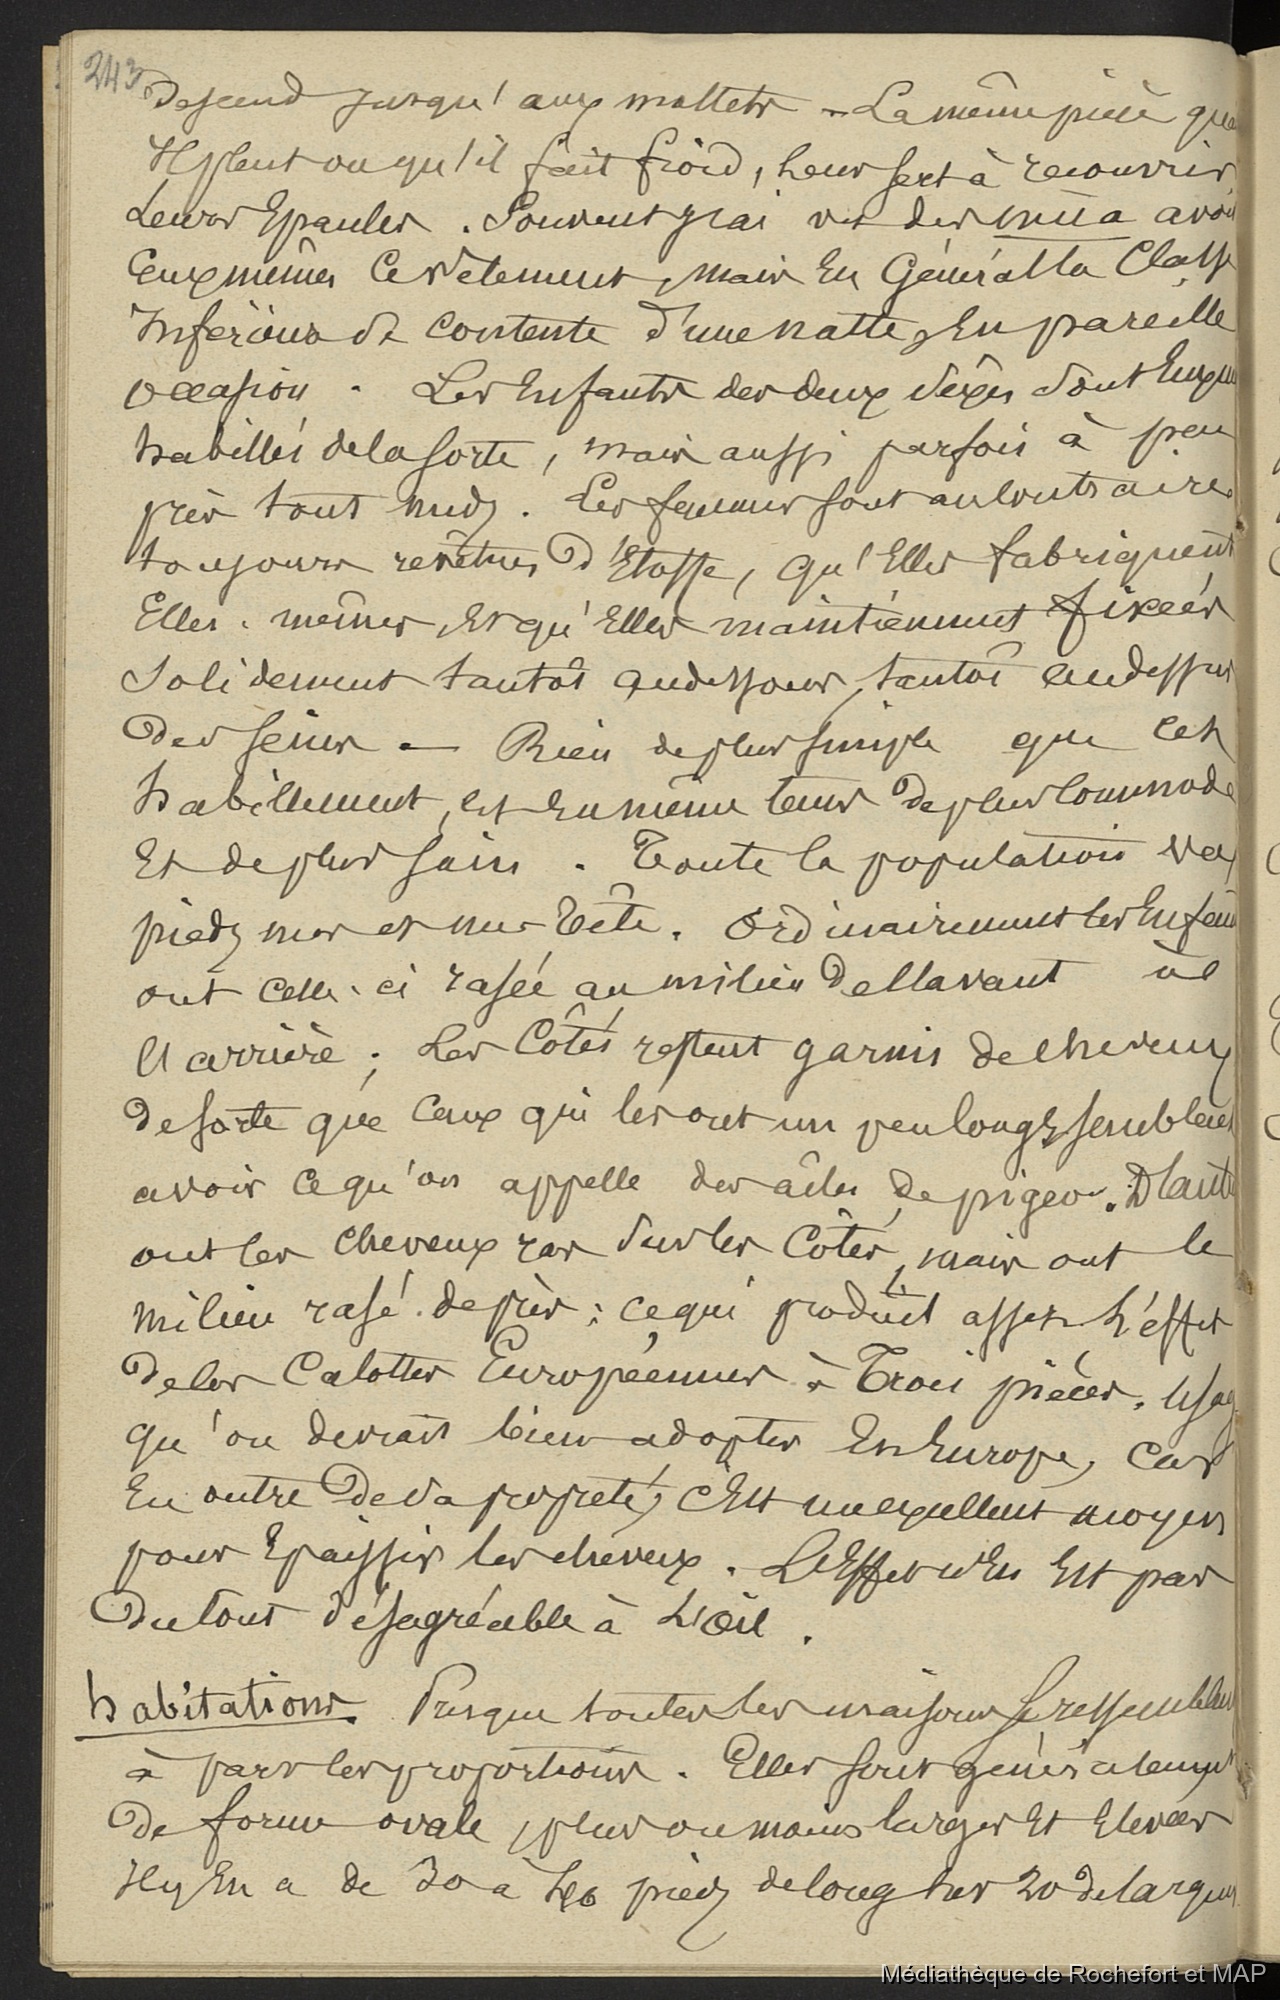 243
Descend jusqu'aux mollets - La même pièce que
Il pleut ou qu'il fait froid, leur sert à recouvrir
Leurs Epaules. Souvent j'ai vu des mua avoir
Eux mêmes Ce vêtement, mais En Général la Classe
Inférieure se contente d'une natte, En pareille
occasion. Les Enfants des deux sexes sont
habillés de la sorte, mais aussi parfois à peu
près tout nuds. Les femmes sont au contraire
toujours revêtues d'Etoffe, qu'Elles fabriquent
Elles. mêmes, Et qu'Elles maintiennent fixées
Solidement tantôt au dessous, tantôt au dessus
Des seins - Rien de plus simple que cet
habillement, et En même tems de plus commode
Et de plus sain. Toute la population va
pieds nus et nue Tête. Ordinairement les Enfans
ont celle. ci rasée au milieu De l'avant à
l'arrière; Les Côtés restent garnis de cheveux
De sorte que Ceux qui les ont un peu longs semblent
avoir ce qu'on appelle des aîles de pigeon. D'autres
ont les cheveux ras sur les Côtés, mais ont le
milieu rasé de près: ce qui produit assez l'effet
De les Calottes Européennes à Trois pièces. Usage
qu'on devrait bien adopter En Europe, Car
En outre De sa propreté, c'Est un excellent moyen
pour Epaissir les cheveux. L'Effet n'En Est pas
Du tout désagréable à L'Œil.
habitations. Presque toutes les maisons se ressemblent
à part les proportions. Elles sont généralement
De forme ovale, plus ou moins larges Et Elevées
Il y En a de 30 à pieds de long sur 20 de largeur
Médiathèque de Rochefort et MAP